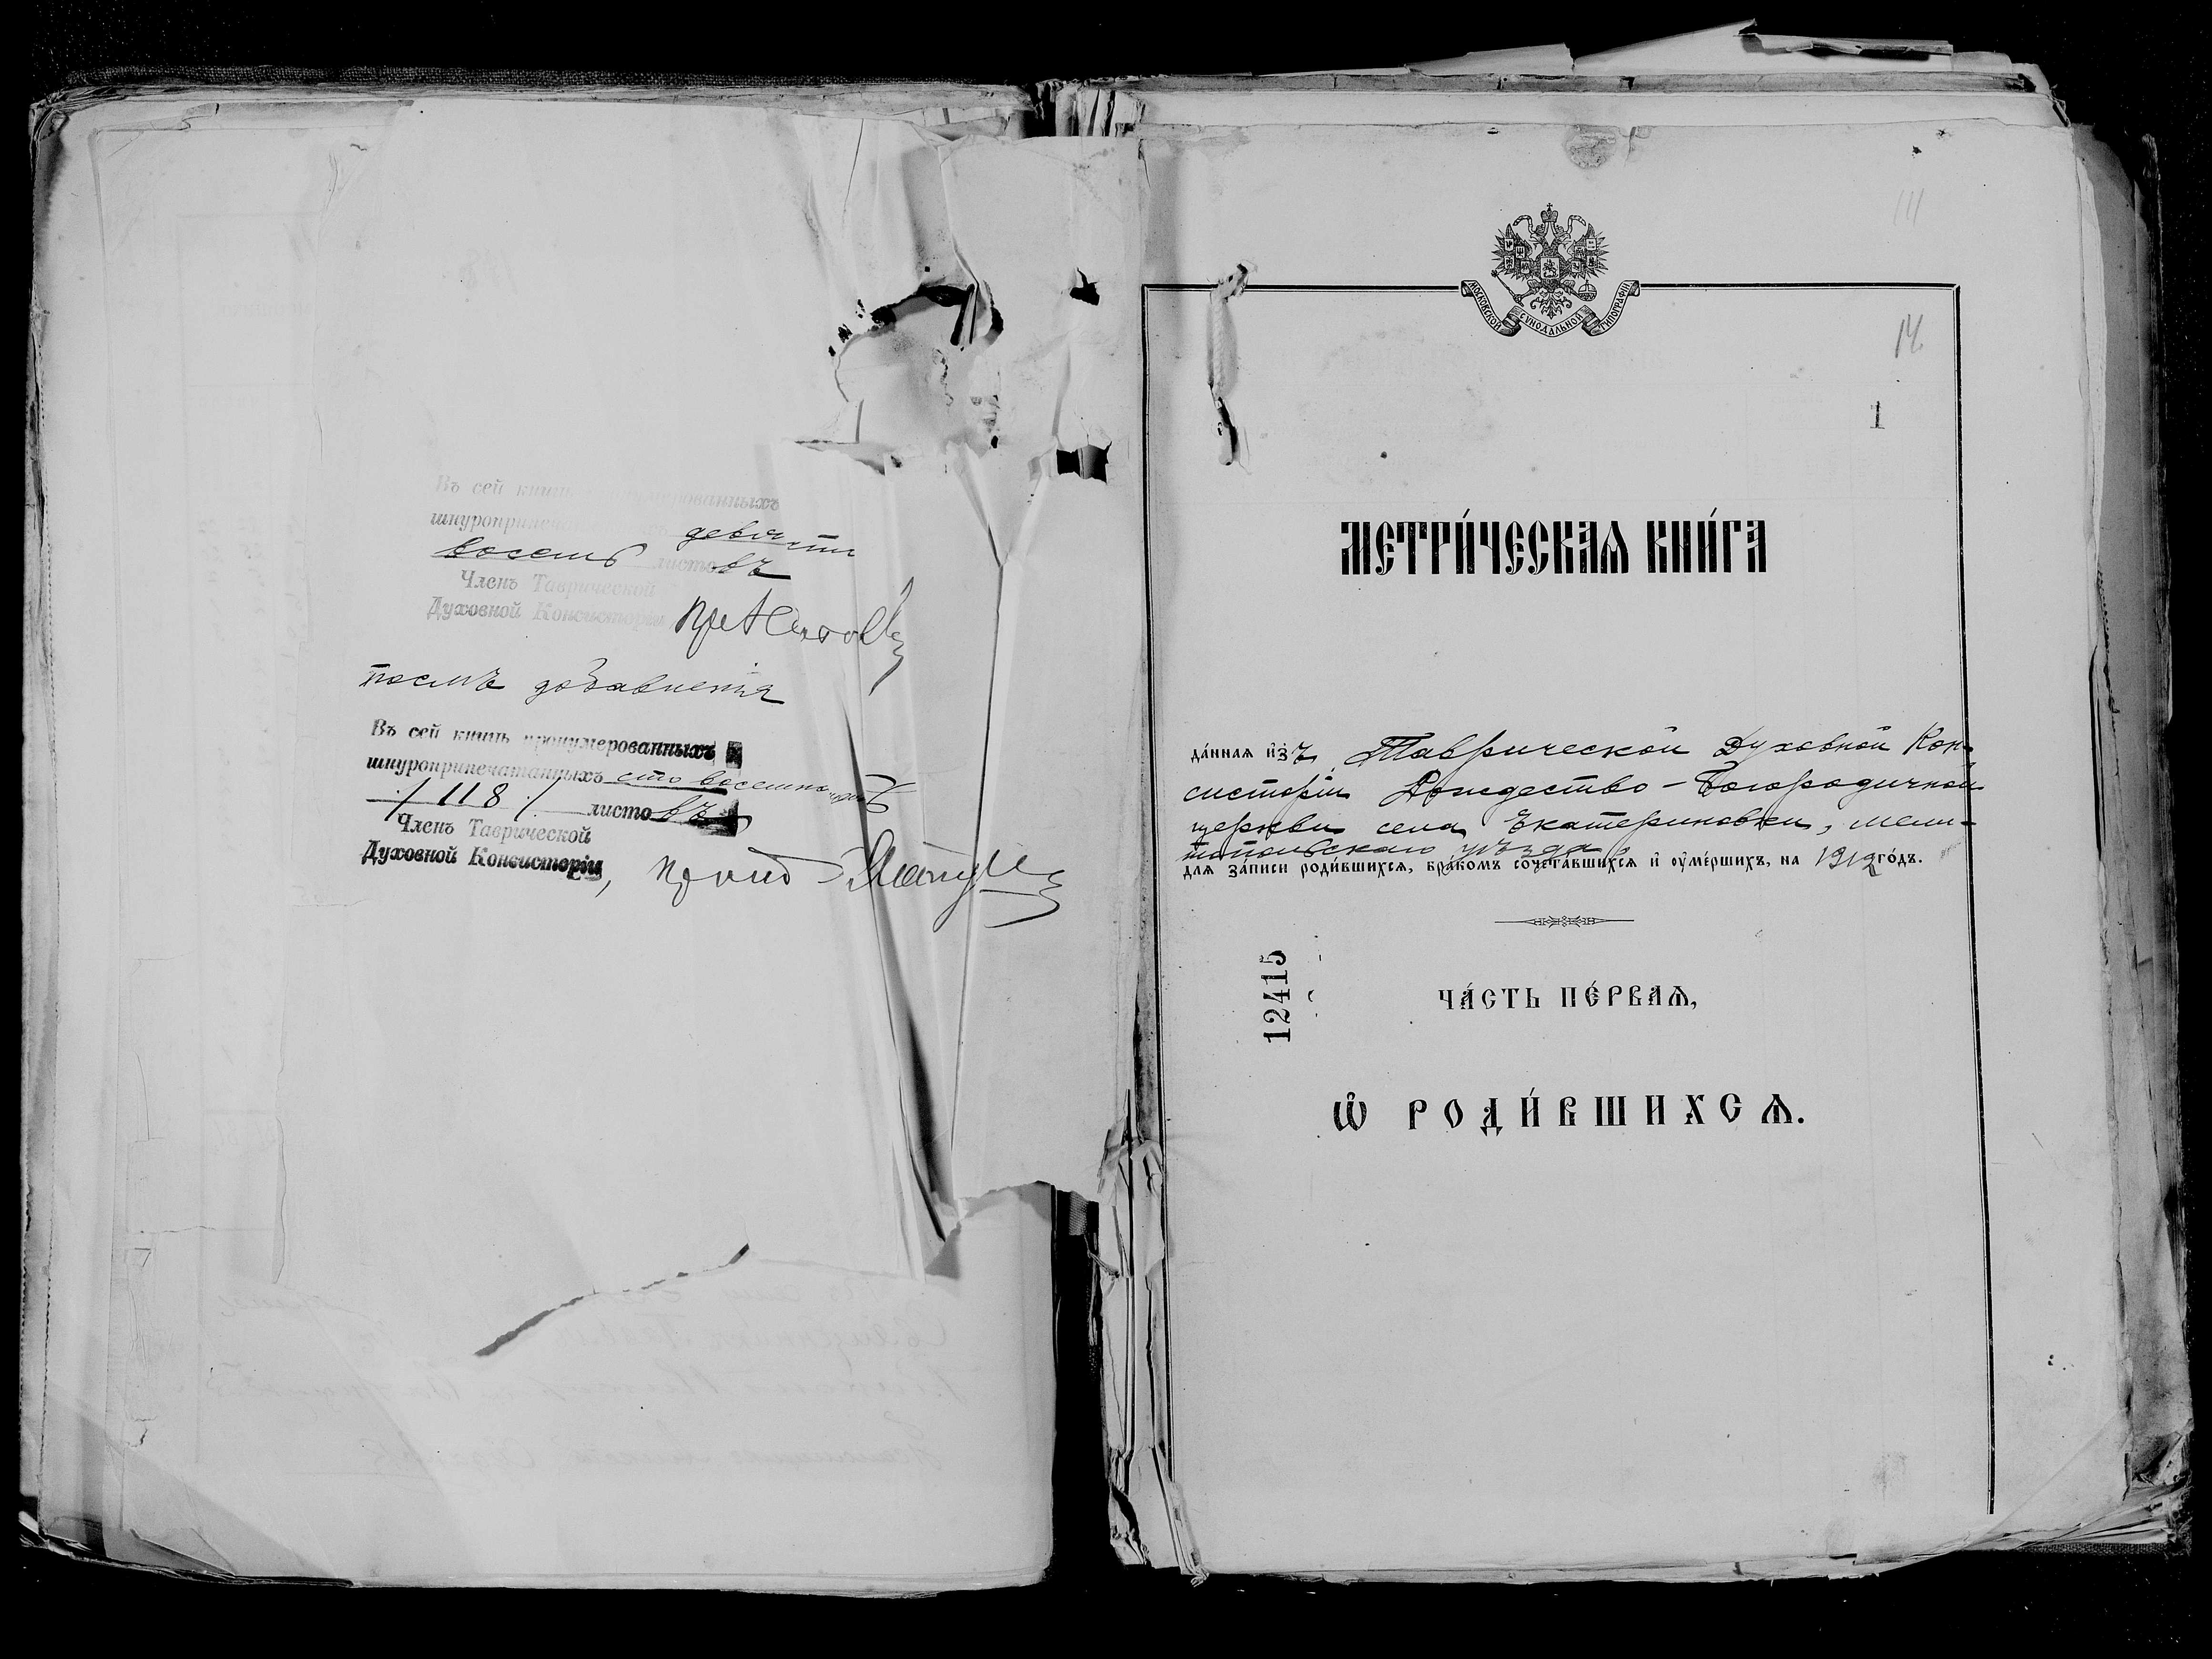 Въ сей книгѣ пронумерованныхъ
шнуропринеча девяносто
восемь листовъ
Членъ Таврической
Духовной Консисторіи
послѣ добавленія
Въ сей книгѣ пронумерованныхъ
шнуропринечатанныхъ сто восемнадцать
/118/ листовъ
Членъ Таврической
Духовной Консисторіи,
111
МОСКОВСКОЙ СУНОДАЛЬНОЙ ТИПОГРАФІИ
14
1
МЕТРИ́ЧЕСКАѦ КНИ́ГА
да́ннаѧ и҆зъ Таврической Духовной Кон-
систоріи Рождество-Богородичной
церкви села Екатериновки, мели-
топольскаго уѣзда,
длѧ за́писи роди́вшихсѧ, бра́комъ сочета́вшихсѧ и҆ ѹ҆ме́ршихъ, на 1912 го́дъ.
12415
ЧА́СТЬ ПЕ́РВАѦ,
Ѡ҆ РОДИ́ВШИХСѦ.